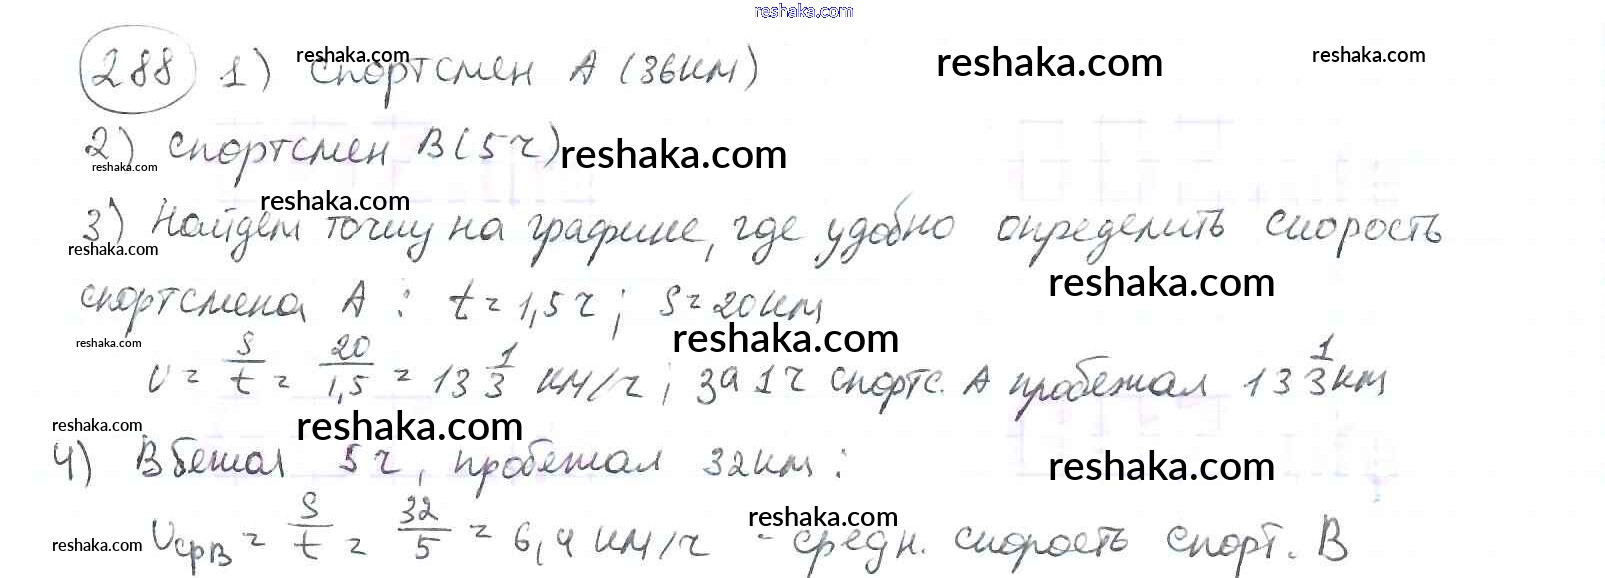 reshaka.com
288 1) спортсмен А (36км) reshaka.com reshaka.com reshaka.com
2) спортсмен В (5 ч) reshaka.com
reshaka.com
reshaka.com
3) Найдем точку на графике, где удобно определить скорость
reshaka.com
спортсмена А : t = 1,5 ч ; S = 20 км reshaka.com
reshaka.com reshaka.com
v = S/t = 20/1,5 = 13 1/3 км/ч ; за 1 ч спортс. А пробежал 13 1/3 км
reshaka.com reshaka.com
4) В бежал 5 ч, пробежал 32 км : reshaka.com
reshaka.com
reshaka.com vсрВ = S/t = 32/5 = 6,4 км/ч - средн. скорость спорт. В